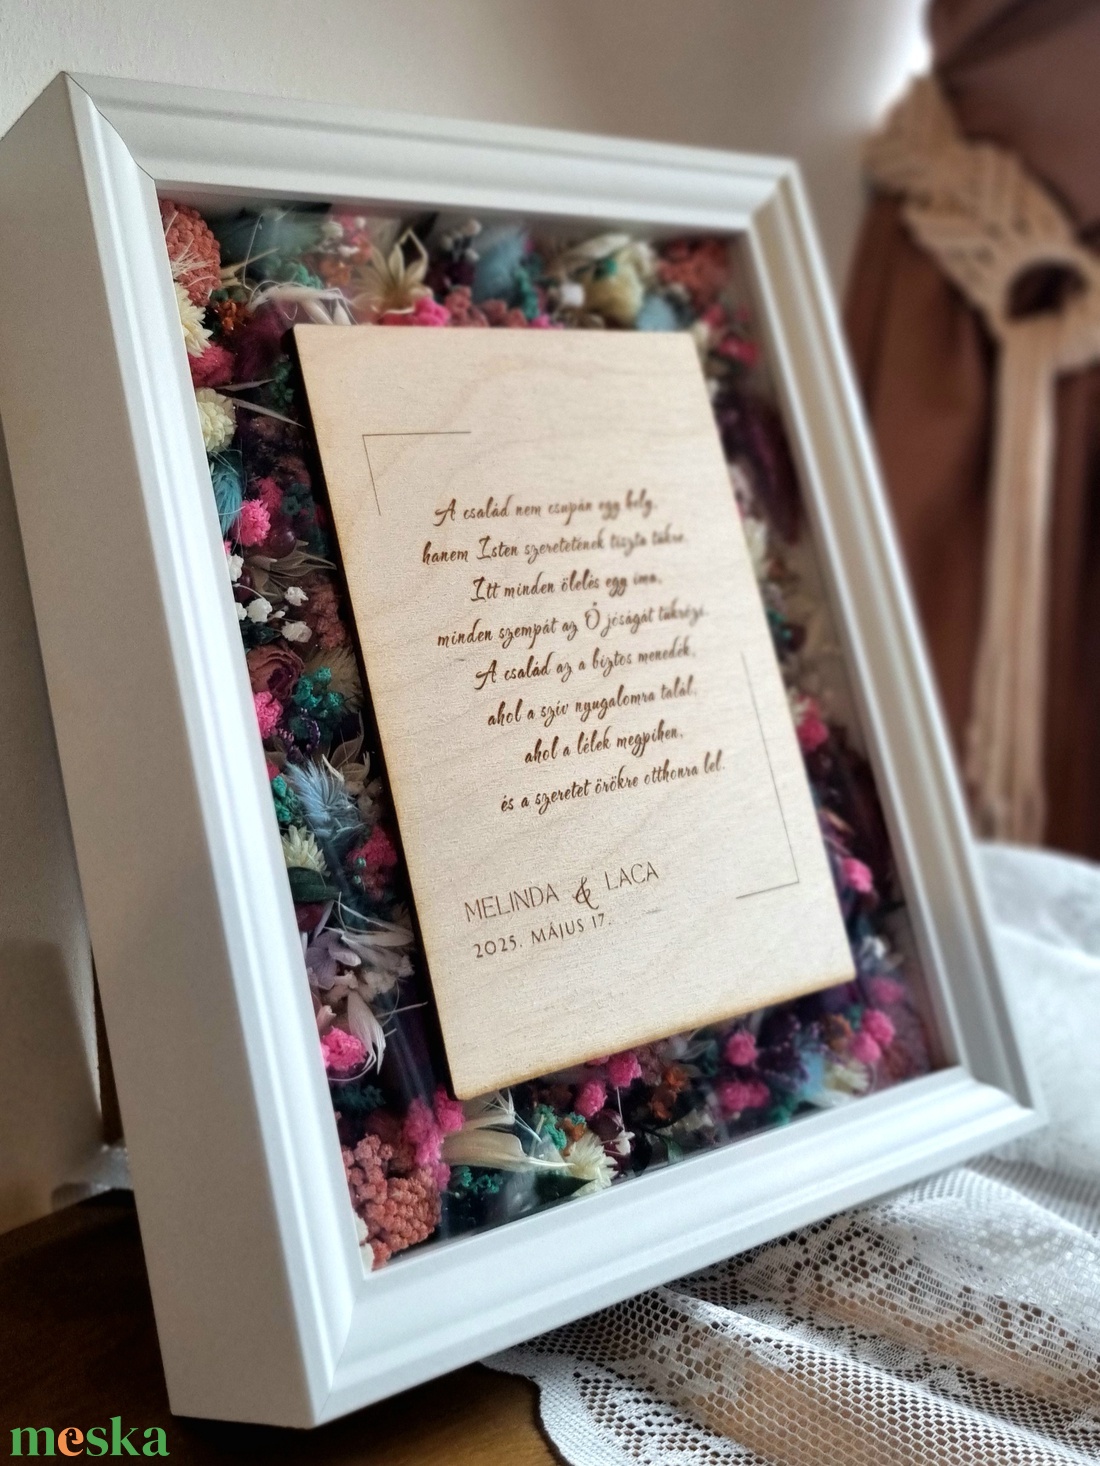 A család nem csupán egy hely,
hanem Isten szeretetének tiszta tükre.
Itt minden ölelés egy ima,
minden szempát az Ő jóságát tükrözi.
A család az a biztos menedék,
ahol a szív nyugalomra talál,
ahol a lélek megpihen,
és a szeretet örökre otthonra lel.
MELINDA & LACA
2025. MÁJUS 17.
meska